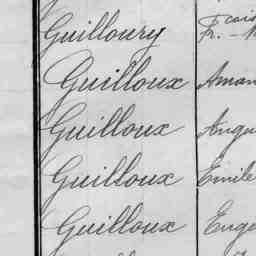 Guilloury Fr.cois
Guilloux Aman
Guilloux Augu
Guilloux Emile
Guilloux Euge